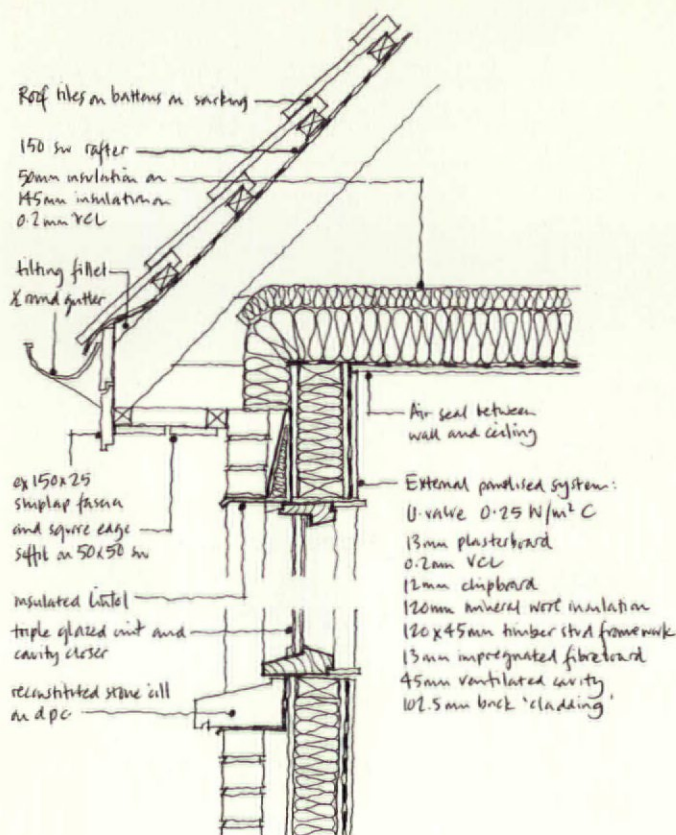 Roof tiles on battens on sarking
150 sw rafter
50mm insulation on
145mm insulation on
0.2mm VCL
tilting fillet
½ round gutter
ex 150x25
shiplap fascia
and square edge
soffit on 50x50 sw
insulated lintol
triple glazed unit and
cavity closer
reconstituted stone cill
on dpc
Air seal between
wall and ceiling
External panelised system:
U-value 0.25 W/m² C
13mm plasterboard
0.2mm VCL
12mm chipboard
120mm mineral wool insulation
120x45mm timber stud framework
13mm impregnated fibreboard
45mm ventilated cavity
102.5mm brick 'cladding'